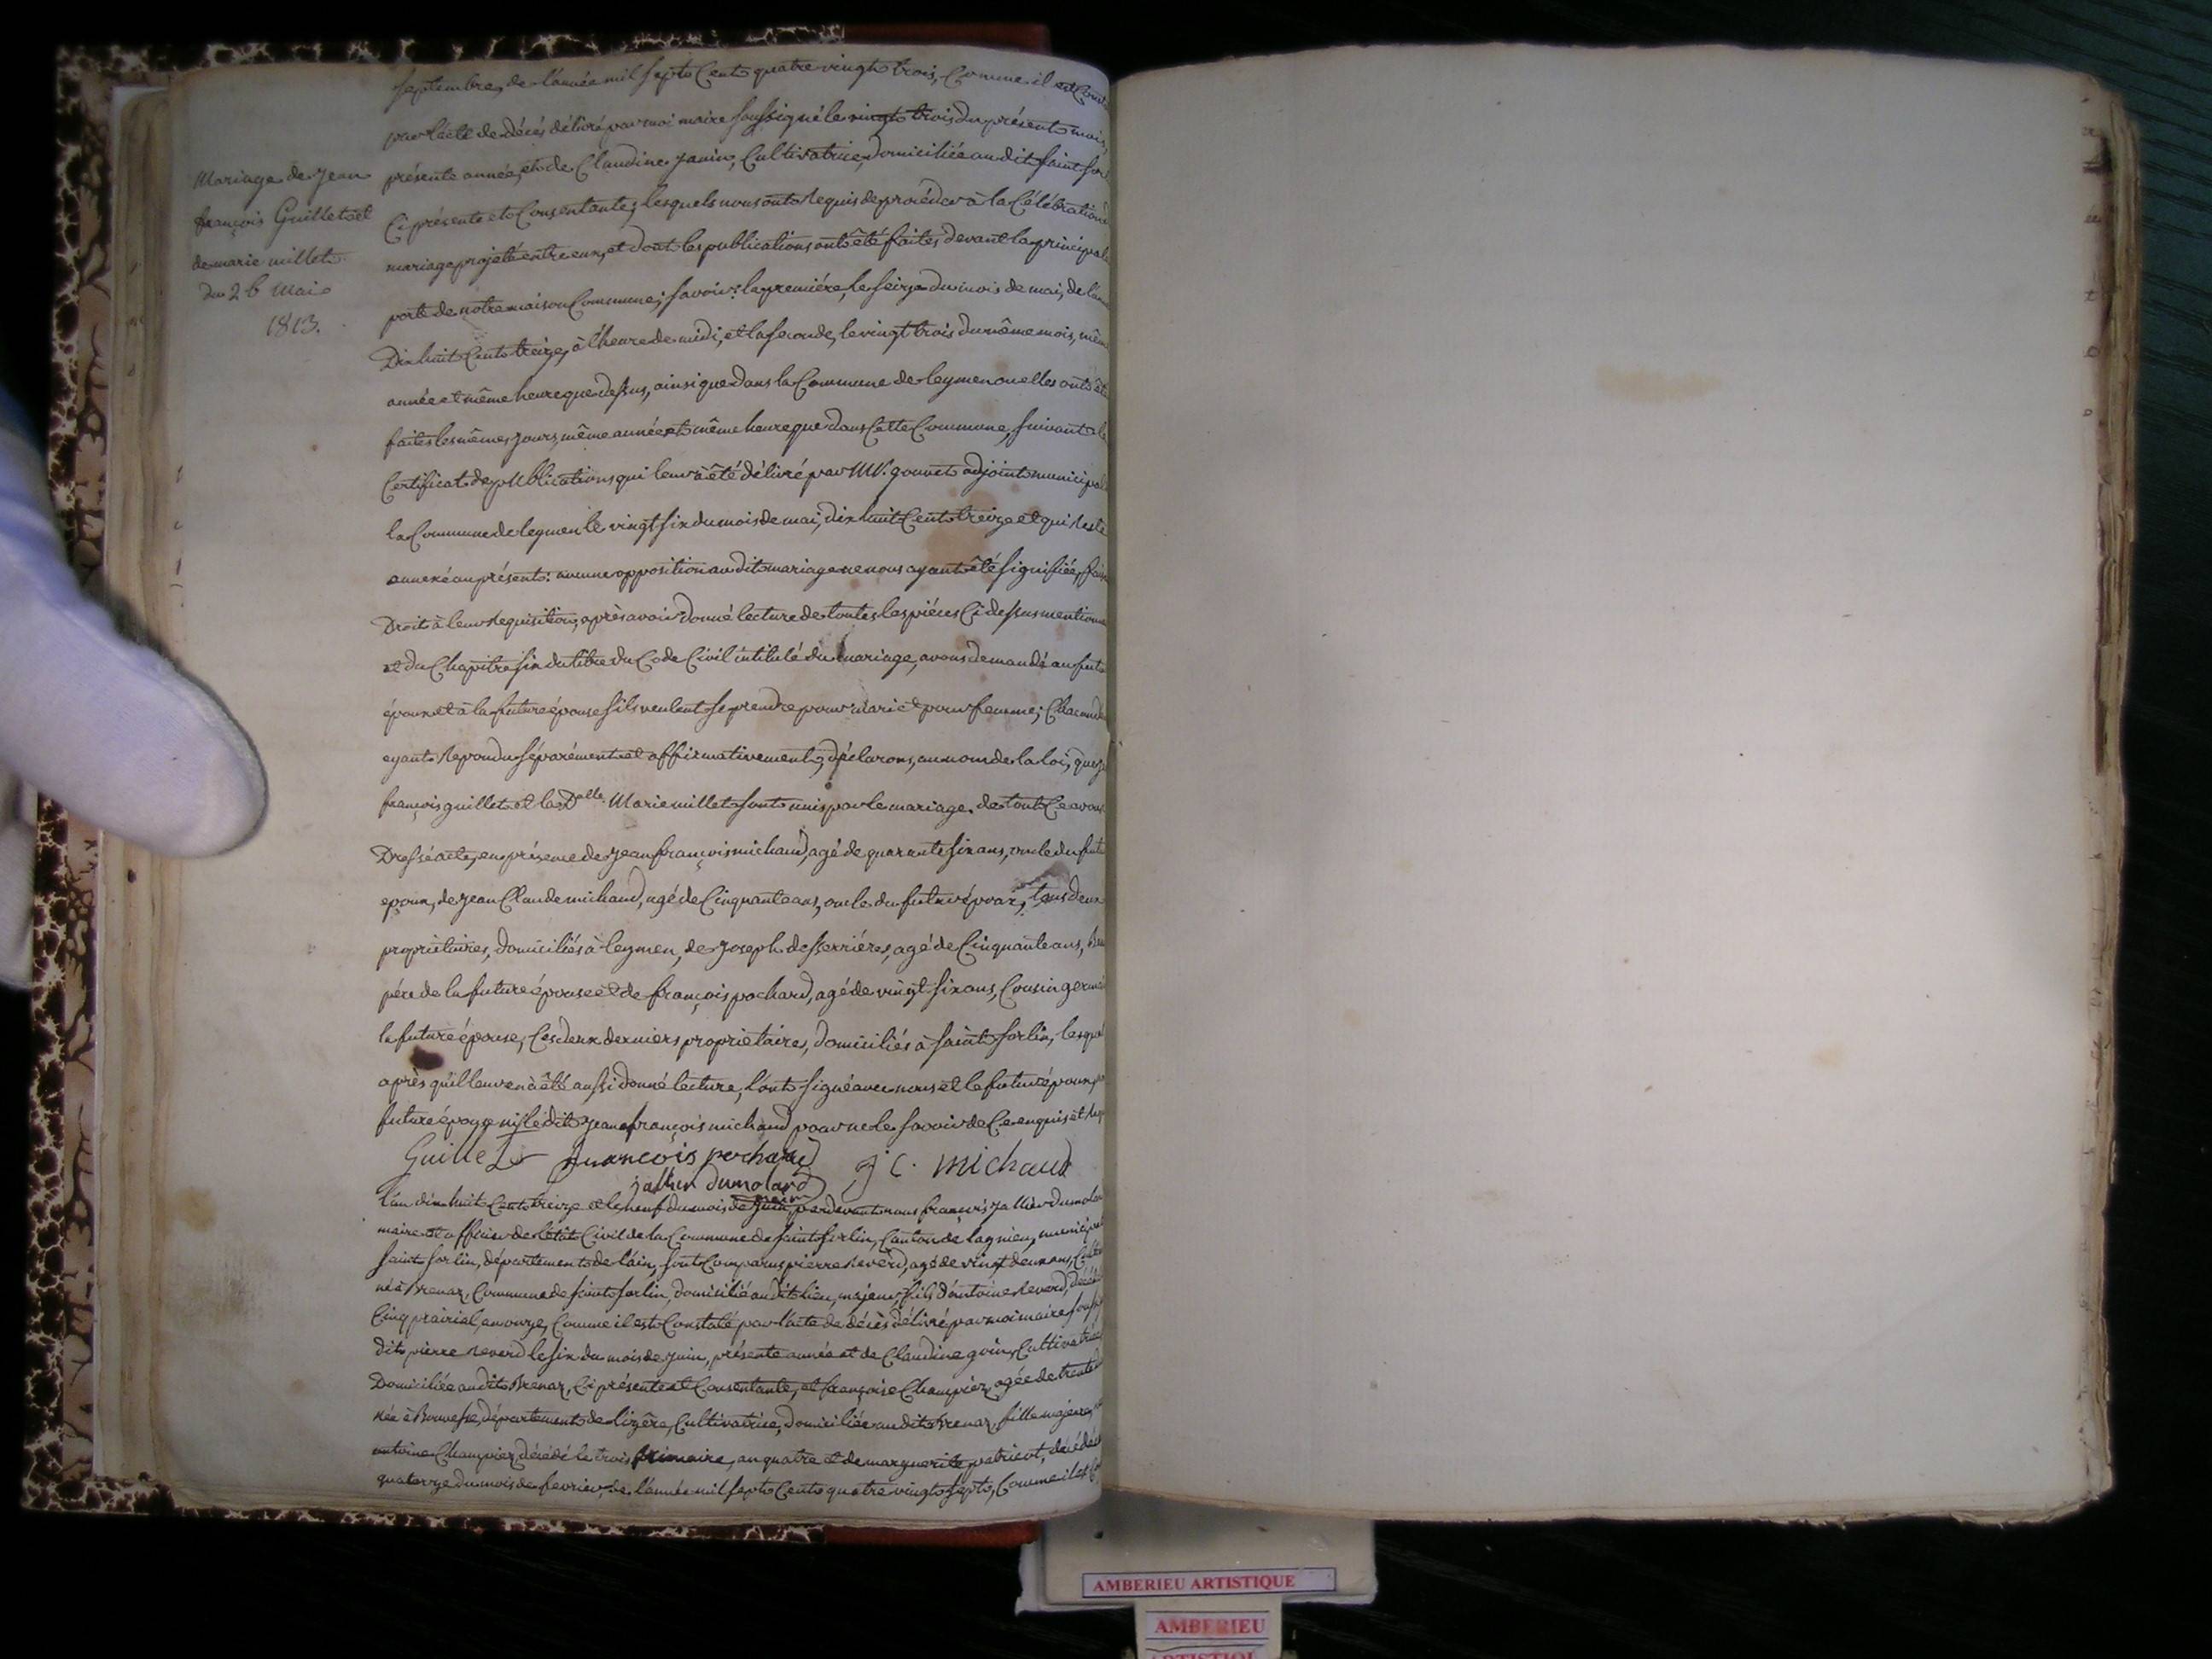 septembre, de l'année mil sept cent quatre vingt trois, Comme il est Cons
par l'acte de décés délivré par moi maire soussigné le vingt trois du présent mois,
présente année, et de Claudine Janin, Cultivatrice, domiciliée au dit saint sor
Ci présente et Consentante; lesquels nous ont requis de procéder à la Célébration d
mariage projeté entre eux, et dont les publications ont été faites devant la principale
porte de notre maison Commune; savoir: la premiére, le seize du mois de mai, de l'an
Dix huit Cent treize, à l'heure de midi, et la seconde, le vingt trois du même mois, mêm
année et même heure que dessus, ainsi que dans la Commune de leymen ou elles ont été
faites les mêmes jours, même année et même heure que dans Cette Commune, suivant le
Certificat de publications qui leur à été délivré par Mr. gonnet adjoint municipal
la Commune de leymen le vingt six du mois de mai, dix huit Cent treize et qui reste
annexé au présent: aucune opposition au dit mariage ne nous ayant été signifiée, fais
Droit à leur requisition, après avoir donné lecture de toutes les piéces Ci dessus mentionn
et du Chapitre six du titre du Code Civil intitulé du mariage, avons demandé au futu
époux et à la future épouse s'ils veulent se prendre pour mari et pour femme; Chacun d
ayant repondu séparément et affirmativement, déclarons, au nom de la loi, que je
françois guillet et la Delle. Marie millet sont unis par le mariage. de tout Ce avons
Dressé acte, en présence de jean françois michaud, agé de quarante six ans, oncle du futu
epoux, de jean Claude michaud, agé de Cinquante ans, oncle du futur époux, tous deux
propriétaires, domiciliés à leymen, de joseph desserriéres, agé de Cinquante ans, Beau
pére de la future épouse et de françois pochard, agé de vingt six ans, Cousin germai
la future épouse, Ces deux derniers propriétaires, domiciliés à saint sorlin, lesquel
après qu'il leur en à été aussi donné lecture, l'ont signé avec nous et le futur époux,
future épouse ni le dit jean françois michaud pour ne le savoir de Ce enquis et req
Guillet françois pochard J C. michaud
jallier dumolard
L'an dix huit Cent treize et le neuf du mois de juin, pardevant nous françois jallier dumolar
maire et officier de l'état Civil de la Commune de saint sorlin, Canton de lagnieu, municipal
saint sorlin, département de l'ain, sont Comparus pierre reverd, agé de vingt deux ans, Culti
né à Brenaz, Commune de saint sorlin, domicilié au dit lieu, majeur, fils d'antoine reverd, décéd
Cinq prairial, an onze, Comme il est Constaté par l'acte de décés délivré par moi maire souss
dit pierre reverd le six du mois de juin, présente année et de Claudine goin, Cultivatrice
Domiciliée au dit Brenaz, Ci présente et Consentante, et françoise Champier, agée de trente
née à Bouvesse, département de l'izére, Cultivatrice, domiciliée au dit Brenaz, fille majeure
antoine Champier, décédé le trois frimaire, an quatre et de marguerite patricot, décédée
quatorze du mois de fevrier, de l'année mil sept Cent quatre vingt sept, Comme il est Con
Mariage de jean
françois Guillet et
de marie millet
du 26 Mai
1813.
AMBERIEU ARTISTIQUE
AMBERIEU
ARTISTIQUE